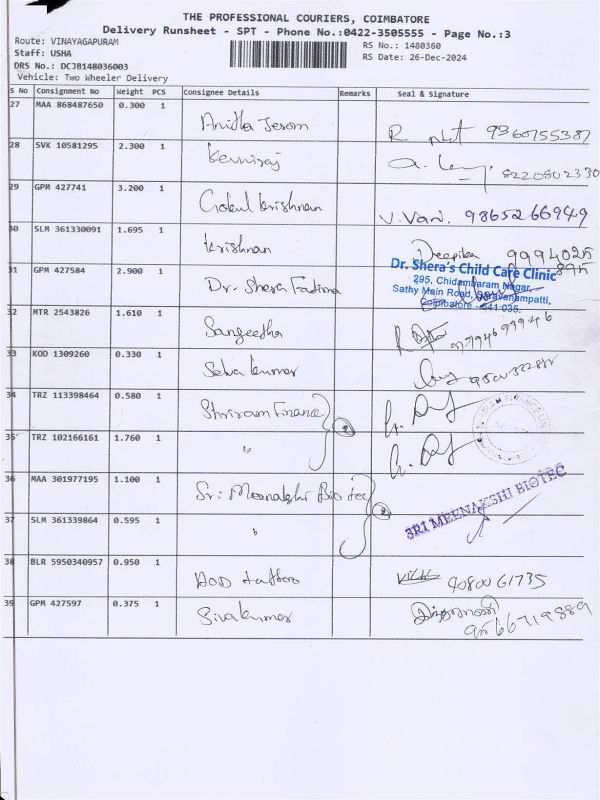 THE PROFESSIONAL COURIERS, COIMBATORE
Delivery Runsheet - SPT - Phone No.:0422-3505555 - Page No.:3
Route: VINAYAGAPURAM
RS No.: 1480360
Staff: USHA
RS Date: 26-Dec-2024
DRS No.: DCJB148036003
Vehicle: Two Wheeler Delivery
S No Consignment No Weight PCS Consignee Details Remarks Seal & Signature
27 MAA 868487650 0.300 1 Anitha Jerom R. 9360755387
28 SVK 10581295 2.300 1 8220802330
29 GPM 427741 3.200 1 Gokul Krishnan V. Vani. 9865266949
30 SLM 361330091 1.695 1 Krishnan Deepika 9994025895
31 GPM 427584 2.900 1 Dr. Shera Fadima
Dr. Shera's Child Care Clinic
295, Chidambaram Nagar,
Sathy Main Road, Saravanampatti,
Coimbatore - 641 035.
32 MTR 2543826 1.610 1 Sangeetha
33 KOD 1309260 0.330 1 Selva kumar
34 TRZ 113398464 0.580 1 Shriram Finance 2
35 TRZ 102166161 1.760 1 "
36 MAA 301977195 1.100 1 Sri Meenakshi Bio tec 2
SRI MEENAKSHI BIOTEC
37 SLM 361339864 0.595 1 "
38 BLR 5950340957 0.950 1 tattoo 9080061735
39 GPM 427597 0.375 1 Sivakumar 9566719889